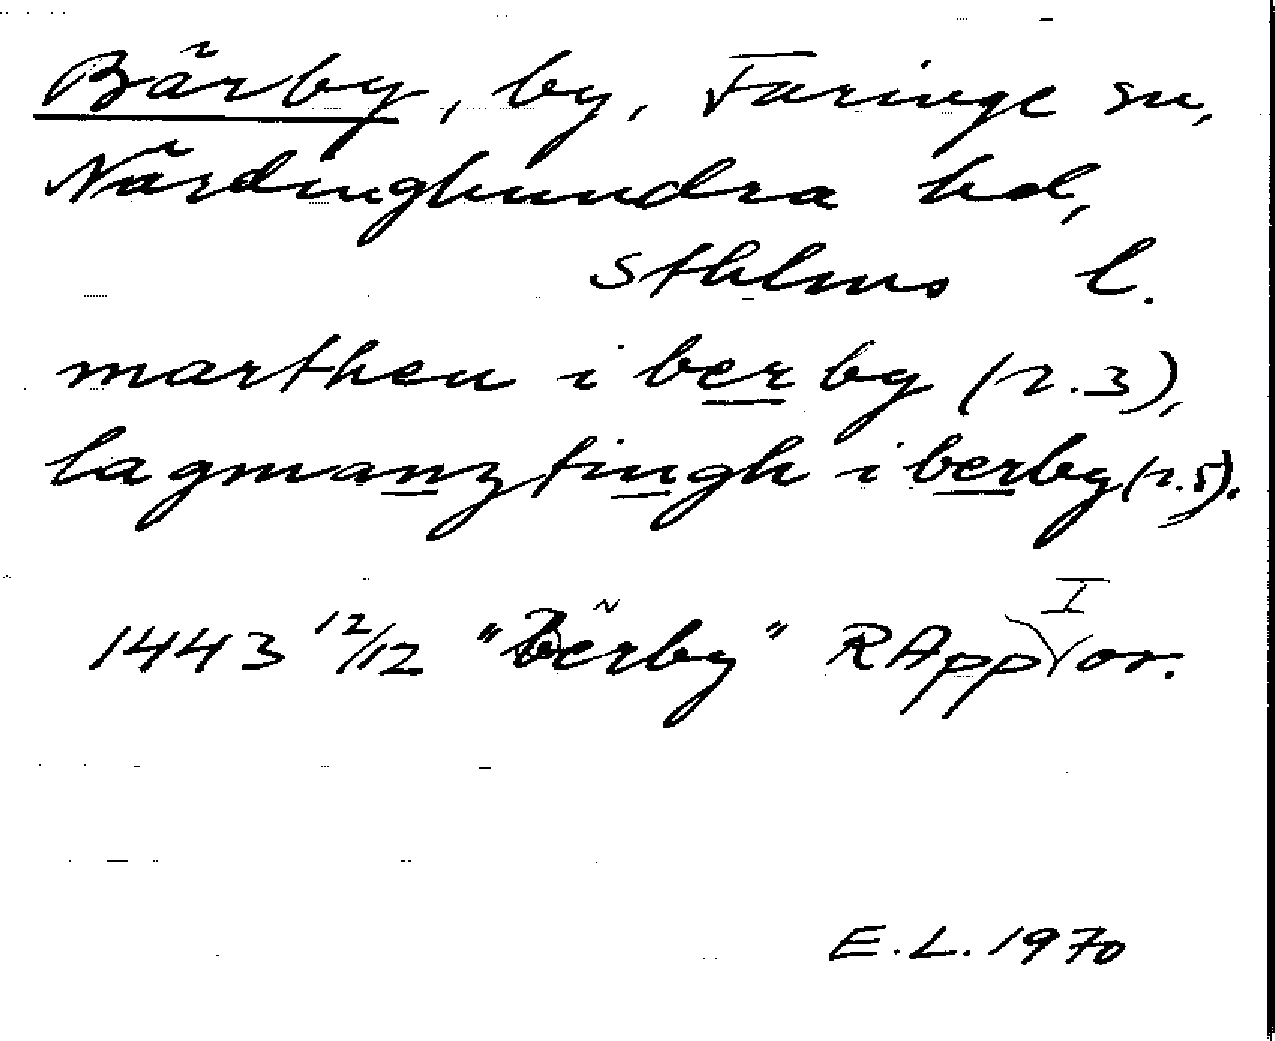 Bärby, by, Faringe sn,
Närdinghundra hd,
Sthlms l.
marthen i berby (r. 3),
lagmanz tingh i berby (r. 5).
1443 12/12 "Bërby" RApp I or.
E.L. 1970